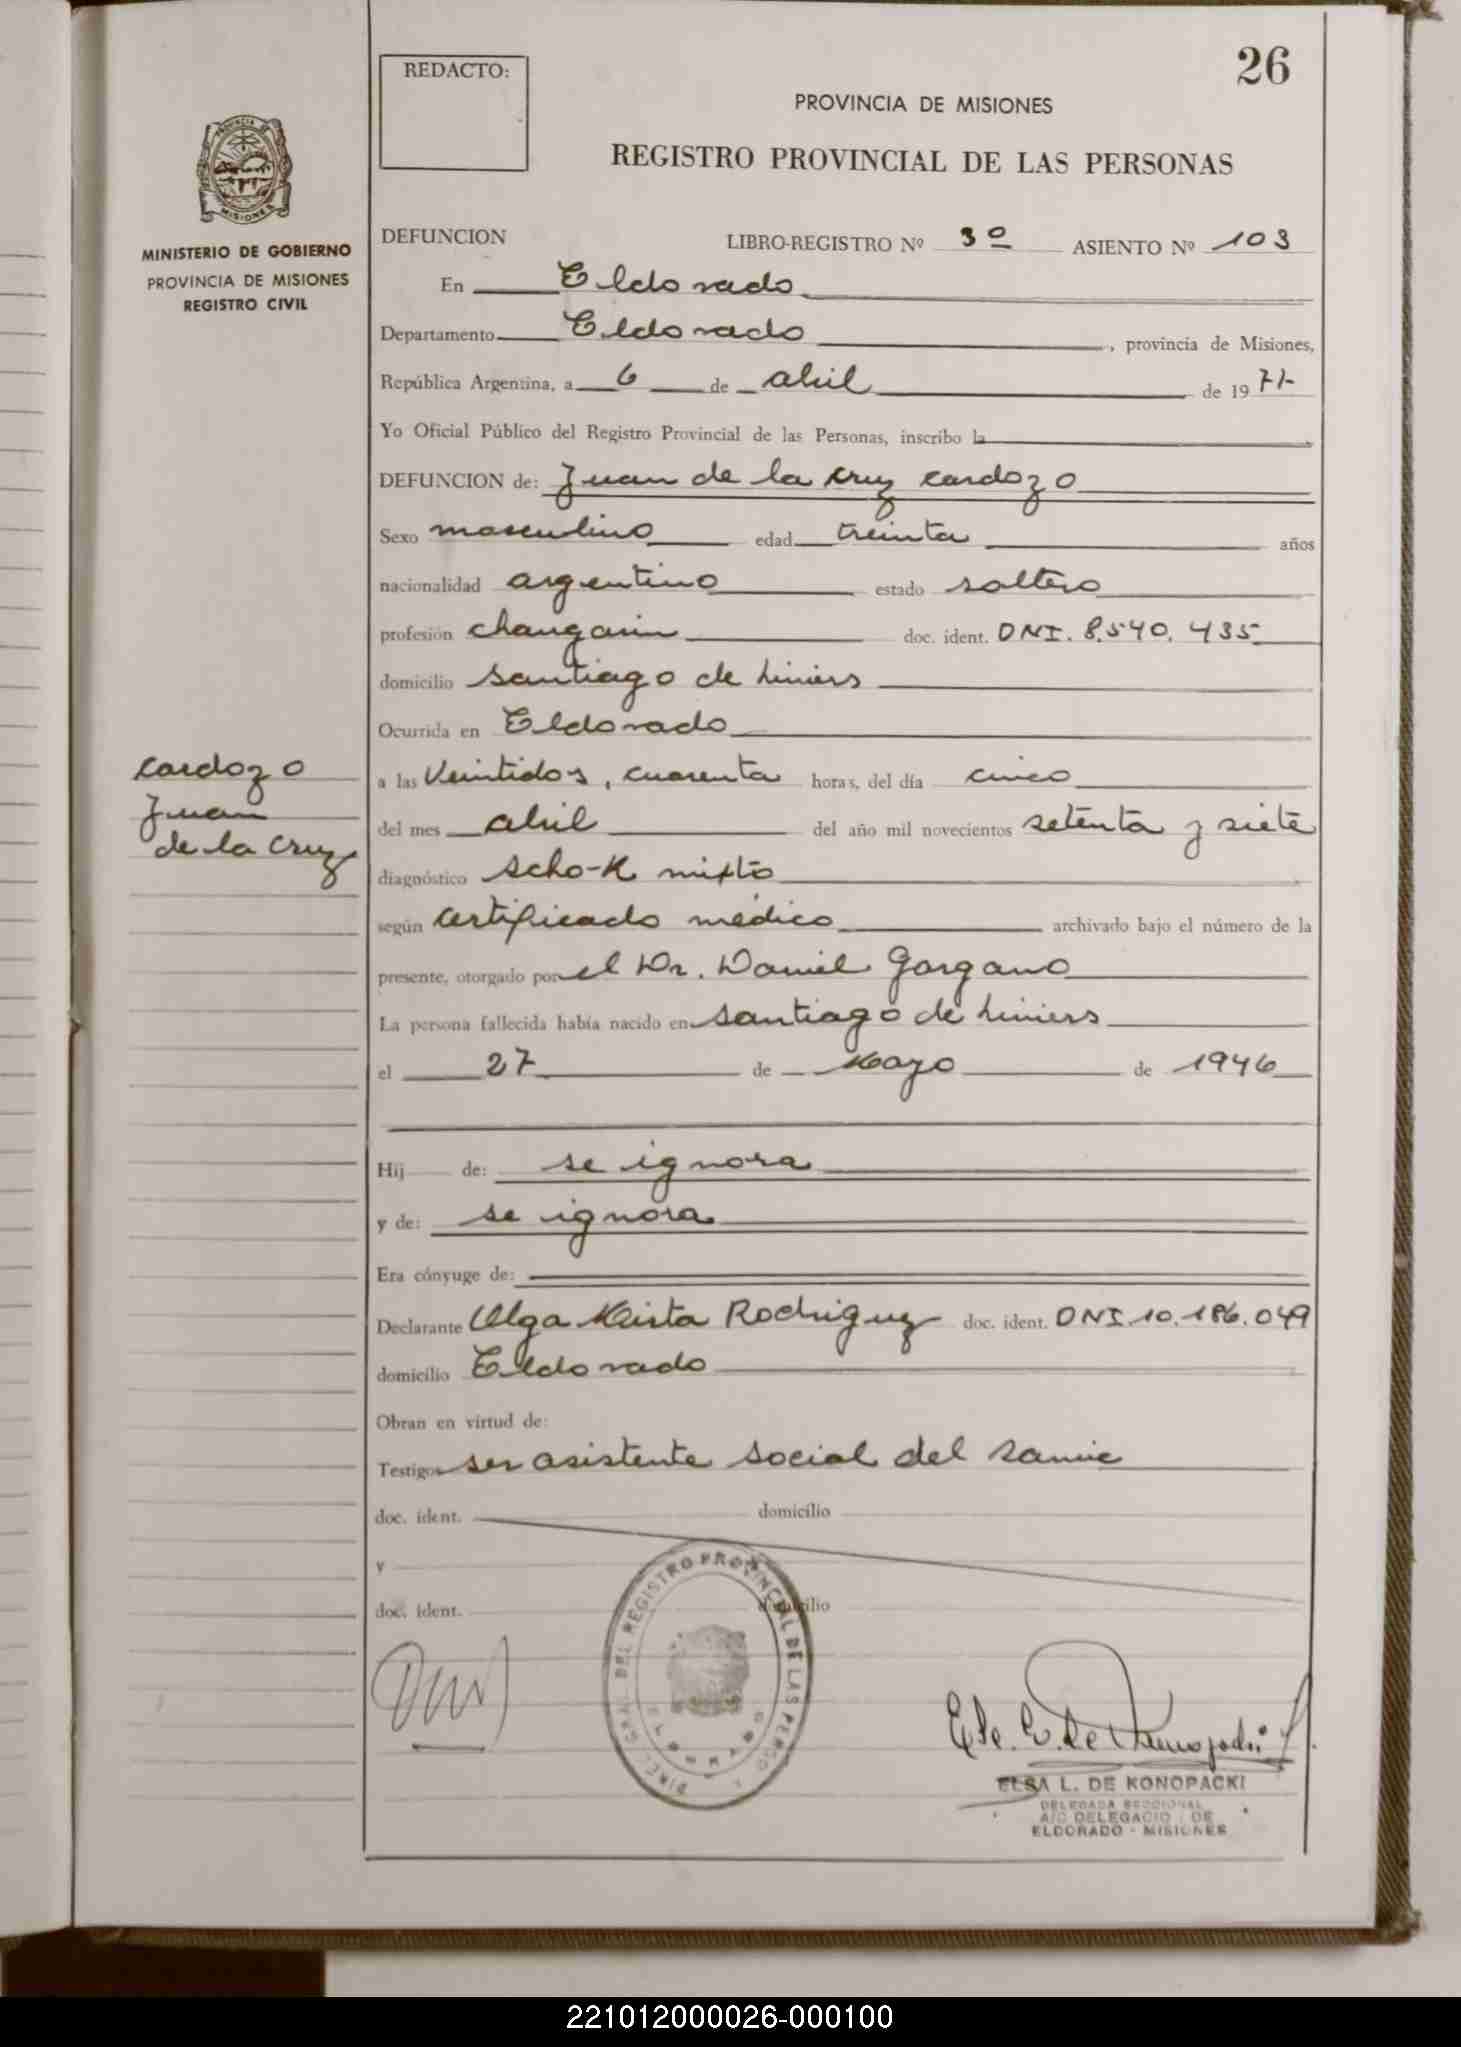 26
REDACTO:
PROVINCIA DE MISIONES
REGISTRO PROVINCIAL DE LAS PERSONAS
PROVINCIA DE
MISIONES
MINISTERIO DE GOBIERNO
PROVINCIA DE MISIONES
REGISTRO CIVIL
DEFUNCION LIBRO-REGISTRO Nº 3º ASIENTO Nº 103
En Eldorado
Departamento Eldorado, provincia de Misiones,
República Argentina, a 6 de abril de 1977-
Yo Oficial Público del Registro Provincial de las Personas, inscribo la
DEFUNCION de: Juan de la Cruz Cardozo
Sexo masculino edad treinta años
nacionalidad argentino estado soltero
profesión changarin doc. ident. DNI. 8.540.435
domicilio Santiago de Liniers
Ocurrida en Eldorado
Cardozo
Juan
de la Cruz
a las Veintidos, cuarenta horas, del día cinco
del mes abril del año mil novecientos setenta y siete
diagnóstico Scho-K mixto
según certificado médico archivado bajo el número de la
presente, otorgado por el Dr. Daniel Gorgano
La persona fallecida había nacido en Santiago de Liniers
el 27 de Mayo de 1946
Hij de: se ignora
y de: se ignora
Era cónyuge de:
Declarante Olga Mirta Rodriguez doc. ident. DNI.10.186.049
domicilio Eldorado
Obran en virtud de:
Testigos ser asistente social del Samic
doc. ident. domicilio
y
doc. ident. domicilio
DIREC. GRAL. DEL REGISTRO PROVINCIAL DE LAS PERSO
ELDORADO
ELSA L. DE KONOPACKI
DELEGADA SECCIONAL
A/C DELEGACIO DE
ELDORADO - MISIONES
221012000026-000100